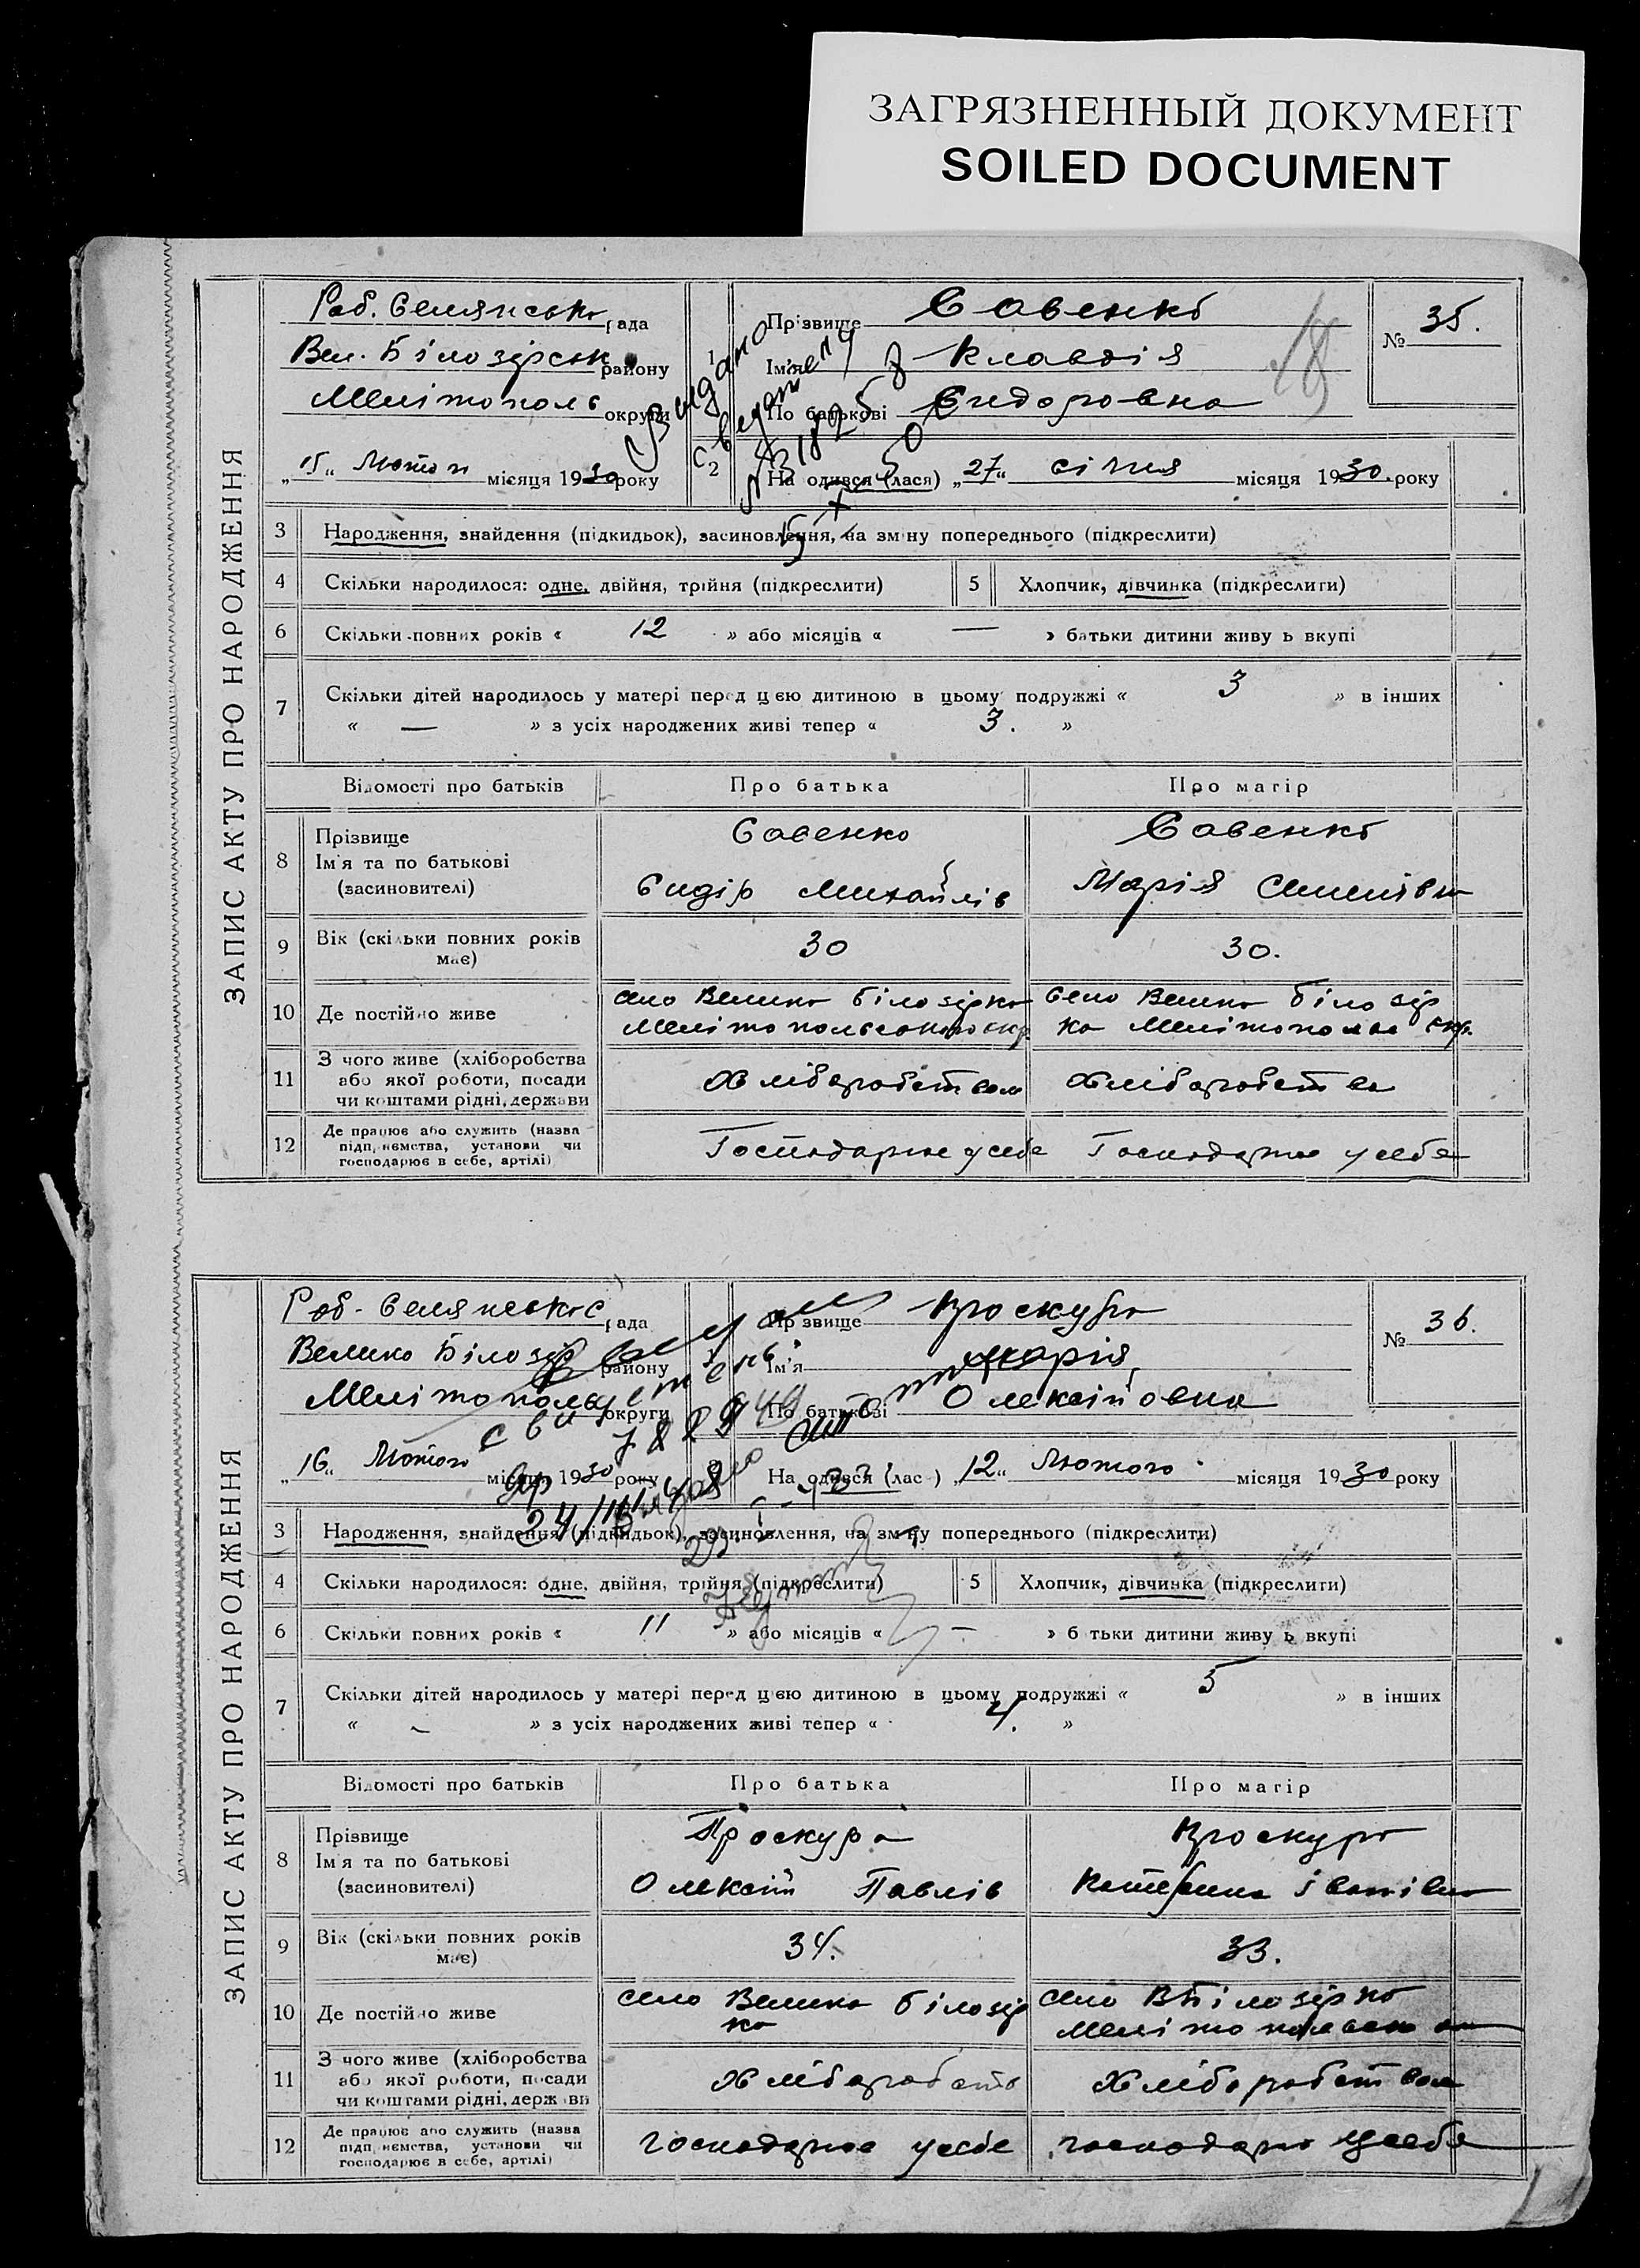 ЗАГРЯЗНЕННЫЙ ДОКУМЕНТ
SOILED DOCUMENT
ЗАПИС АКТУ ПРО НАРОДЖЕННЯ
Роб. Селянсько рада
Вел. Білозірськ району
Мелітополь округи
„15“ Лютого місяця 1930 року
1
Прізвище Савенко
Ім'я Клавдія
По батькові Сидоровна
№ 35.
2
На одився (лася) „27“ січня місяця 1930. року
Видано
№ 1825
3 Народження, знайдення (підкидьок), засиновлення, на зм ну попереднього (підкреслити)
4 Скільки народилося: одне, двійня, трійня (підкреслити) 5 Хлопчик, дівчинка (підкреслити)
6 Скільки повних років « 12 » або місяців « — » батьки дитини живу ь вкупі
7 Скільки дітей народилось у матері перед цією дитиною в цьому подружжі « 3 » в інших
« — » з усіх народжених живі тепер « 3. »
Відомості про батьків Про батька Про матір
8 Прізвище
Ім'я та по батькові
(засиновителі)
Савенко
Сидір Михайлів
Савенко
Марія Семенівн
9 Вік (скільки повних років має) 30 30.
10 Де постійно живе
село Велика Білозірка
Мелітопольського окр.
село Велика Білозір
ка Мелітополь окр.
11 З чого живе (хліборобства
або якої роботи, посади
чи коштами рідні, держави
Хліборобством Хліборобства
12 Де працює або служить (назва
підп иємства, установи чи
господарює в себе, артілі)
Господарює у себе Господарює у себе
ЗАПИС АКТУ ПРО НАРОДЖЕННЯ
Роб. Селянськ рада
Велико Білозір району
Мелітополь округи
„16“ Лютого місяця 1930 року
Прізвище Проскура
Ім'я Марія
По батькові Олексійовна
№ 36.
На одився (лас ) „12“ Лютого місяця 1930 року
3 Народження, знайдення (підкидьок), засиновлення, на зміну попереднього (підкреслити)
4 Скільки народилося: одне, двійня, трійня (підкреслити) 5 Хлопчик, дівчинка (підкреслити)
6 Скільки повних років « 11 » або місяців « — » б тьки дитини живу ь вкупі
7 Скільки дітей народилось у матері перед цією дитиною в цьому подружжі « 5 » в інших
« — » з усіх народжених живі тепер « 4. »
Відомості про батьків Про батька Про матір
8 Прізвище
Ім'я та по батькові
(засиновителі)
Проскура
Олексій Павлів
Проскура
Катерина Іванівна
9 Вік (скільки повних років має) 34. 33.
10 Де постійно живе
село Велика Білозір
ка
село В Білозірка
Мелітопольськ
11 З чого живе (хліборобства
або якої роботи, посади
чи коштами рідні, держ ви
Хліборобств Хліборобством
12 Де працює або служить (назва
підп иємства, установи чи
господарює в себе, артілі)
господарює у себе господарює у себе